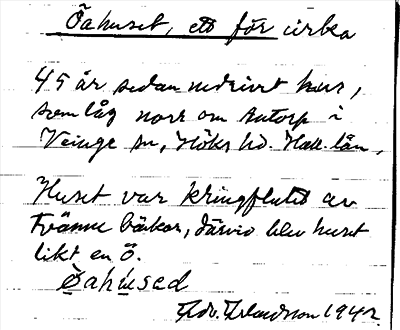 Öahuset, ett för cirka
45 år sedan nedrivet hus,
som låg norr om Åstorp i
Veinge sn, Höks hd. Hall. län,
Huset var kringflutet av
tvänne bäckar, därvid blev huset
likt en ö.
Öahused
1942